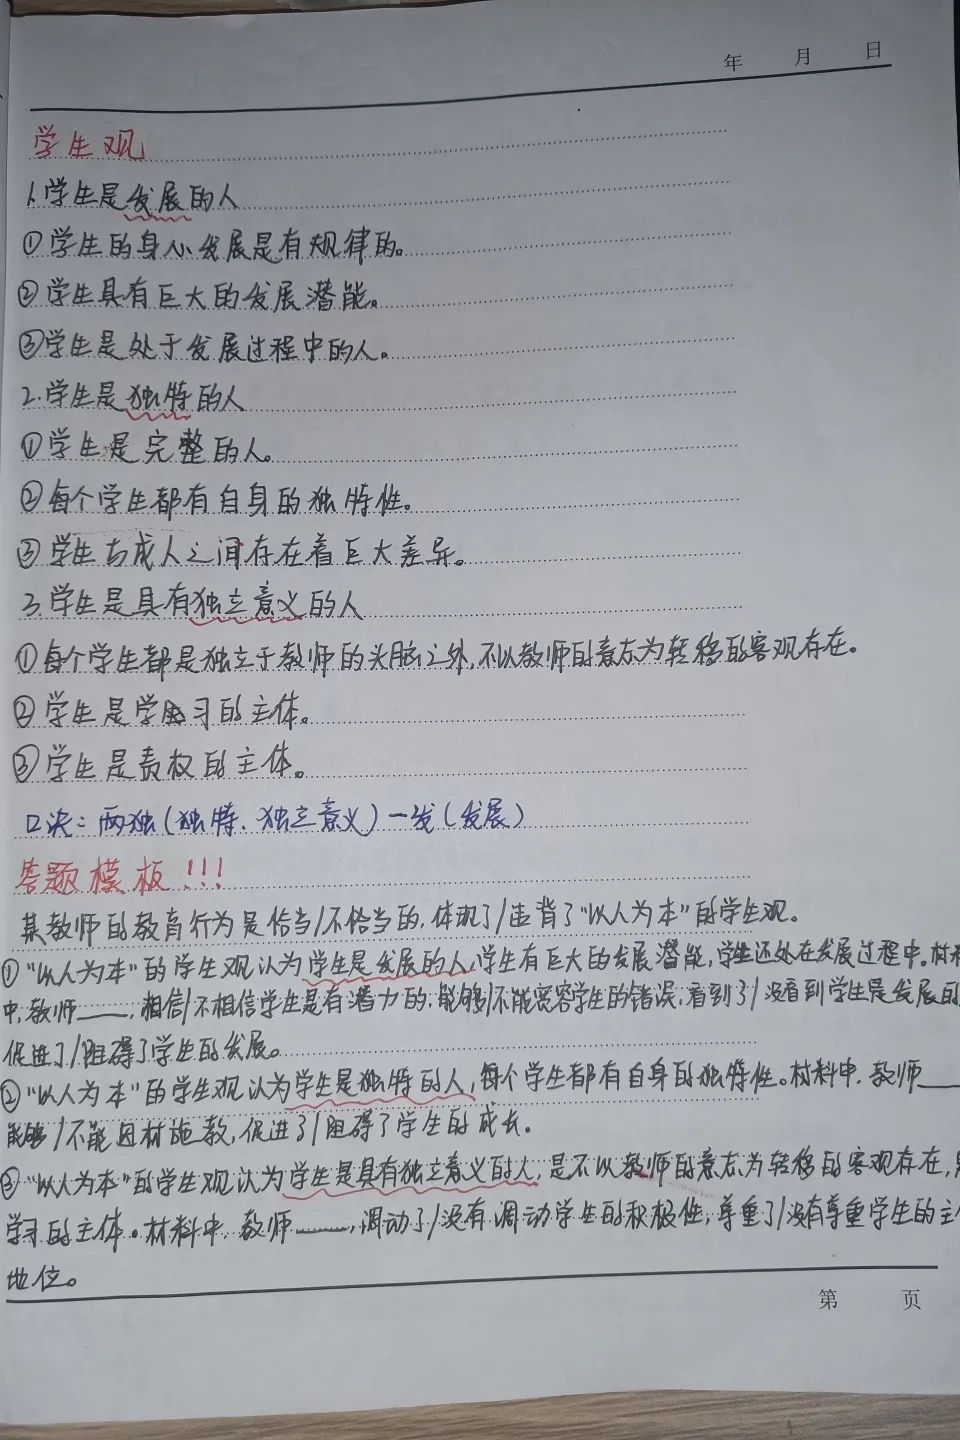 年 月 日
学生观
1.学生是发展的人
①学生的身心发展是有规律的。
②学生具有巨大的发展潜能。
③学生是处于发展过程中的人。
2.学生是独特的人
①学生是完整的人。
②每个学生都有自身的独特性。
③学生与成人之间存在着巨大差异。
3.学生是具有独立意义的人
①每个学生都是独立于教师的头脑之外,不以教师的意志为转移的客观存在。
②学生是学习的主体。
③学生是责权的主体。
口诀:两独(独特、独立意义)一发(发展)
答题模板!!!
某教师的教育行为是恰当/不恰当的,体现了/违背了"以人为本"的学生观。
①"以人为本"的学生观认为学生是发展的人,学生有巨大的发展潜能,学生还处在发展过程中。材料
中,教师____,相信/不相信学生是有潜力的,能够/不能宽容学生的错误,看到了/没看到学生是发展的
促进了/阻碍了学生的发展。
②"以人为本"的学生观认为学生是独特的人,每个学生都有自身的独特性。材料中,教师____
能够/不能因材施教,促进了/阻碍了学生的成长。
③"以人为本"的学生观认为学生是具有独立意义的人,是不以教师的意志为转移的客观存在,是
学习的主体。材料中,教师____,调动了/没有调动学生的积极性,尊重了/没有尊重学生的主体
地位。
第 页